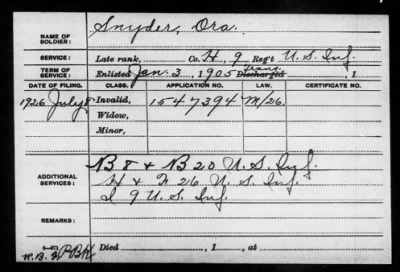 NAME OF SOLDIER: Snyder, Ora.
SERVICE: Late rank, Co. H, 9 Reg't U. S. Inf.
TERM OF SERVICE: Enlisted Jan. 3, 1905 Trans. Discharged , 1
DATE OF FILING. CLASS. APPLICATION NO. LAW. CERTIFICATE NO.
1926 July 8 Invalid, 1547394 M/26.
Widow,
Minor,
ADDITIONAL SERVICES: B 8 & B 20 U. S. Inf.
H & F 26 U. S. Inf.
I 9 U. S. Inf.
REMARKS:
Died , 1 , at